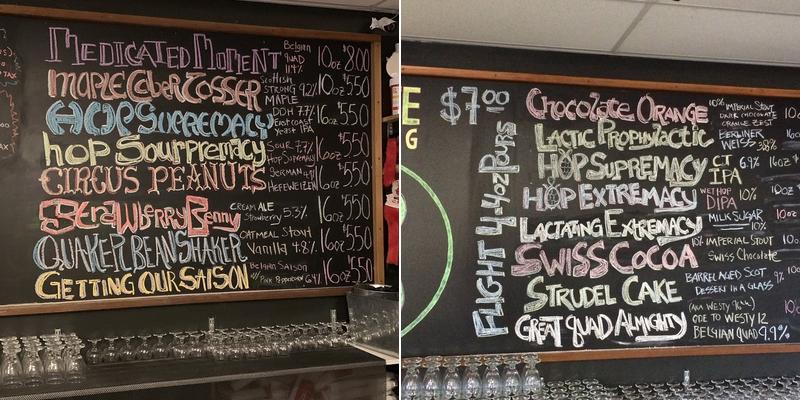 MEDICATED MOMENT Belgian QUAD 11.4% 10oz $800
MAPLE Caber TOSSER Scottish STRONG 9.2% MAPLE 10oz $550
HOP SUPREMACY DDH 7.7% East Coast Yeast IPA 16oz $550
hop Sourpremacy SOUR 7.7% HOP SUPREMACY 16oz $550
CIRCUS PEANUTS GERMAN HEFEWEIZEN 16oz $550
Strawberry Benny CREAM ALE Strawberry 5.3% 16oz $550
QUAKER BEAN SHAKER OATMEAL Stout Vanilla 4.8% 16oz $550
GETTING OUR SAISON Belgian Saison w/ Pink Peppercorn 6.4% 16oz $550
E
G
$700
FLIGHT 4-4oz Pours
Chocolate ORANGE 10% IMPERIAL STOUT DARK CHOCOLATE ORANGE ZEST
LACTIC PROPHYLACTIC BERLINER WEISS 3.8%
HOP SUPREMACY CT IPA 6.9% 16oz
HOP EXTREMACY WET HOP DIPA 10% 10oz
LACTATING EXTREMACY MILK SUGAR 10%
SWISS COCOA 10% IMPERIAL STOUT Swiss Chocolate
STRUDEL CAKE BARREL AGED SCOT DESSERT IN A GLASS 9%
GREAT QUAD ALMIGHTY ODE TO WESTY 12 BELGIAN QUAD 9.9%